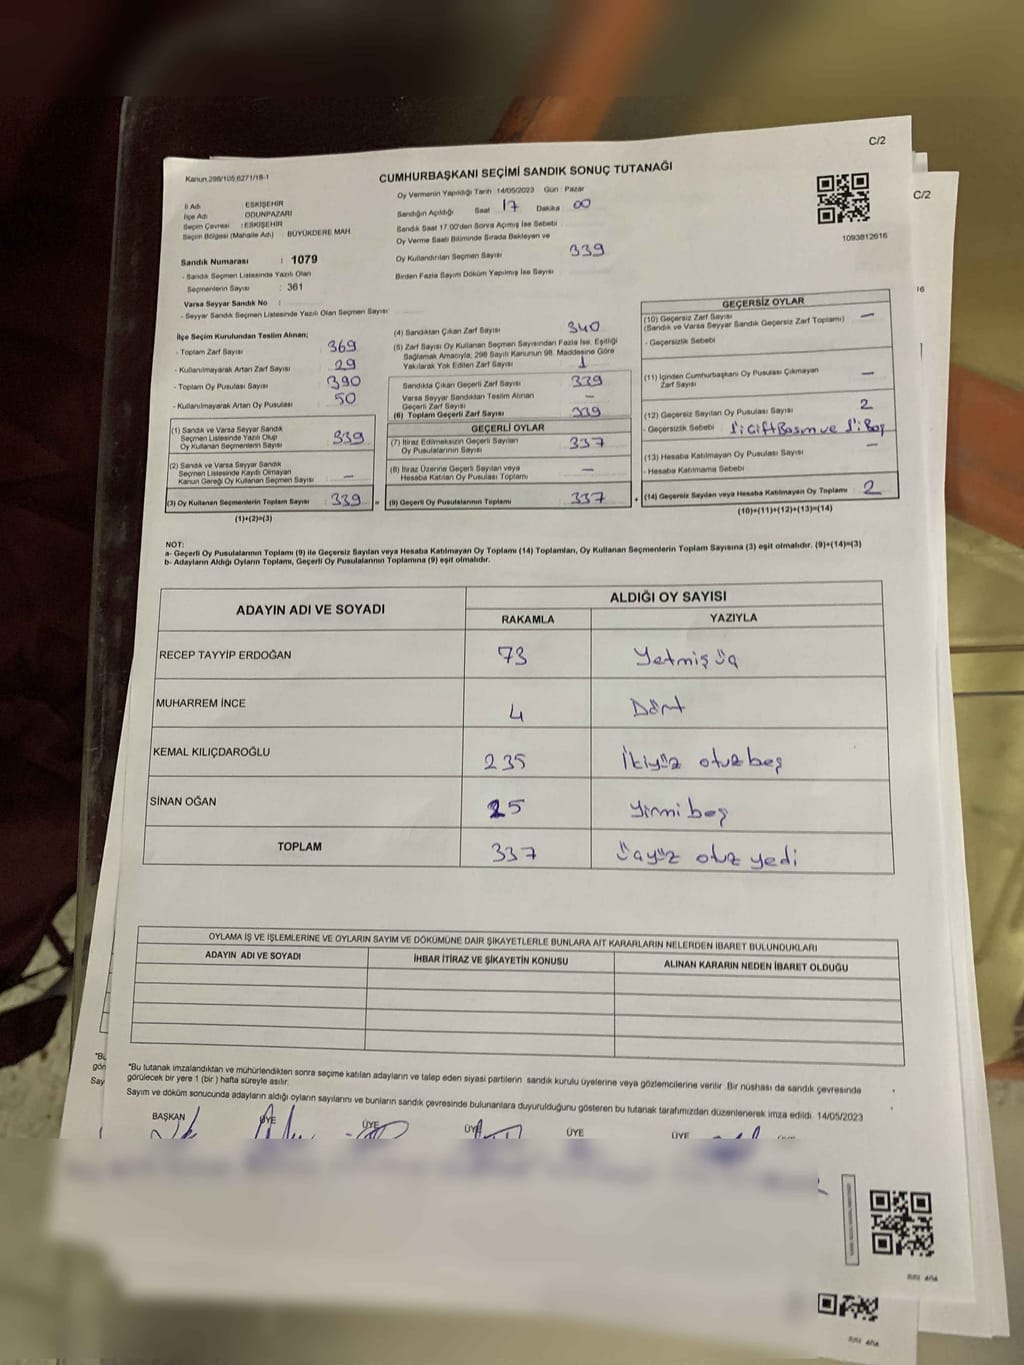 C/2
Kanun.298/105.6271/18-1
CUMHURBAŞKANI SEÇİMİ SANDIK SONUÇ TUTANAĞI
C/2
Oy Vermenin Yapıldığı Tarih 14/05/2023 Gün : Pazar
İl Adı : ESKİŞEHİR
İlçe Adı : ODUNPAZARI
Seçim Çevresi : ESKİŞEHİR
Seçim Bölgesi (Mahalle Adı) : BÜYÜKDERE MAH.
Sandığın Açıldığı Saat 17 Dakika 00
Sandık Saat 17.00'den Sonra Açılmış İse Sebebi
Oy Verme Saati Bitiminde Sırada Bekleyen ve
Oy Kullandırılan Seçmen Sayısı 339
Birden Fazla Sayım Döküm Yapılmış İse Sayısı
1093812616
Sandık Numarası : 1079
- Sandık Seçmen Listesinde Yazılı Olan
Seçmenlerin Sayısı : 361
Varsa Seyyar Sandık No :
- Seyyar Sandık Seçmen Listesinde Yazılı Olan Seçmen Sayısı:
16
İlçe Seçim Kurulundan Teslim Alınan;
- Toplam Zarf Sayısı 369
- Kullanılmayarak Artan Zarf Sayısı 29
- Toplam Oy Pusulası Sayısı 390
- Kullanılmayarak Artan Oy Pusulası 50
(1) Sandık ve Varsa Seyyar Sandık
Seçmen Listesinde Yazılı Olup
Oy Kullanan Seçmenlerin Sayısı 339
(2) Sandık ve Varsa Seyyar Sandık
Seçmen Listesinde Kayıtlı Olmayan
Kanun Gereği Oy Kullanan Seçmen Sayısı —
(3) Oy Kullanan Seçmenlerin Toplam Sayısı 339 =
(1)+(2)=(3)
(4) Sandıktan Çıkan Zarf Sayısı 340
(5) Zarf Sayısı Oy Kullanan Seçmen Sayısından Fazla İse, Eşitliği
Sağlamak Amacıyla, 298 Sayılı Kanunun 98. Maddesine Göre
Yakılarak Yok Edilen Zarf Sayısı 1
Sandıkta Çıkan Geçerli Zarf Sayısı 339
Varsa Seyyar Sandıktan Teslim Alınan
Geçerli Zarf Sayısı —
(6) Toplam Geçerli Zarf Sayısı 339
GEÇERLİ OYLAR
(7) İtiraz Edilmeksizin Geçerli Sayılan
Oy Pusulalarının Sayısı 337
(8) İtiraz Üzerine Geçerli Sayılan veya
Hesaba Katılan Oy Pusulası Toplamı —
(9) Geçerli Oy Pusulalarının Toplamı 337 +
GEÇERSİZ OYLAR
(10) Geçersiz Zarf Sayısı
(Sandık ve Varsa Seyyar Sandık Geçersiz Zarf Toplamı) —
- Geçersizlik Sebebi
(11) İçinden Cumhurbaşkanı Oy Pusulası Çıkmayan
Zarf Sayısı —
(12) Geçersiz Sayılan Oy Pusulası Sayısı 2
- Geçersizlik Sebebi 1'i Çift Basım ve 1'i Boş
(13) Hesaba Katılmayan Oy Pusulası Sayısı —
- Hesaba Katılmama Sebebi
(14) Geçersiz Sayılan veya Hesaba Katılmayan Oy Toplamı 2
(10)+(11)+(12)+(13)=(14)
NOT:
a- Geçerli Oy Pusulalarının Toplamı (9) ile Geçersiz Sayılan veya Hesaba Katılmayan Oy Toplamı (14) Toplamları, Oy Kullanan Seçmenlerin Toplam Sayısına (3) eşit olmalıdır. (9)+(14)=(3)
b- Adayların Aldığı Oyların Toplamı, Geçerli Oy Pusulalarının Toplamına (9) eşit olmalıdır.
ADAYIN ADI VE SOYADI ALDIĞI OY SAYISI
RAKAMLA YAZIYLA
RECEP TAYYİP ERDOĞAN 73 Yetmiş üç
MUHARREM İNCE 4 Dört
KEMAL KILIÇDAROĞLU 235 İkiyüz otuz beş
SİNAN OĞAN 25 Yirmi beş
TOPLAM 337 Üçyüz otuz yedi
OYLAMA İŞ VE İŞLEMLERİNE VE OYLARIN SAYIM VE DÖKÜMÜNE DAİR ŞİKAYETLERLE BUNLARA AİT KARARLARIN NELERDEN İBARET BULUNDUKLARI
ADAYIN ADI VE SOYADI İHBAR İTİRAZ VE ŞİKAYETİN KONUSU ALINAN KARARIN NEDEN İBARET OLDUĞU
*Bu tutanak imzalandıktan ve mühürlendikten sonra seçime katılan adayların ve talep eden siyasi partilerin sandık kurulu üyelerine veya gözlemcilerine verilir .Bir nüshası da sandık çevresinde
görülecek bir yere 1 (bir ) hafta süreyle asılır.
Sayım ve döküm sonucunda adayların aldığı oyların sayılarını ve bunların sandık çevresinde bulunanlara duyurulduğunu gösteren bu tutanak tarafımızdan düzenlenerek imza edildi. 14/05/2023
*Bu
gör
Say
BAŞKAN ÜYE ÜYE ÜYE ÜYE ÜYE